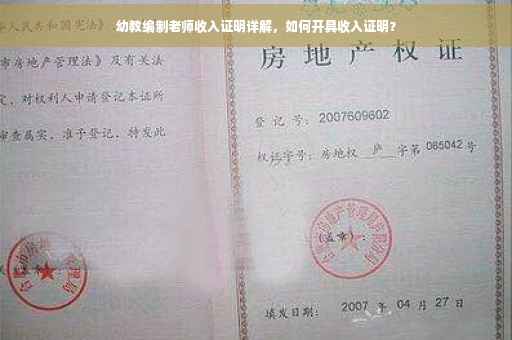 幼教编制老师收入证明详解，如何开具收入证明？
华人民共和国宪法》
市房地产管理法》及有关法
定，对权利人申请登记本证所
审查属实，准予登记，特发此
房地产权证
登记号：2007609602
权证字号：房地权 庐 字第 085042 号
（盖章）：
填发日期： 2007 年 04 月 27 日